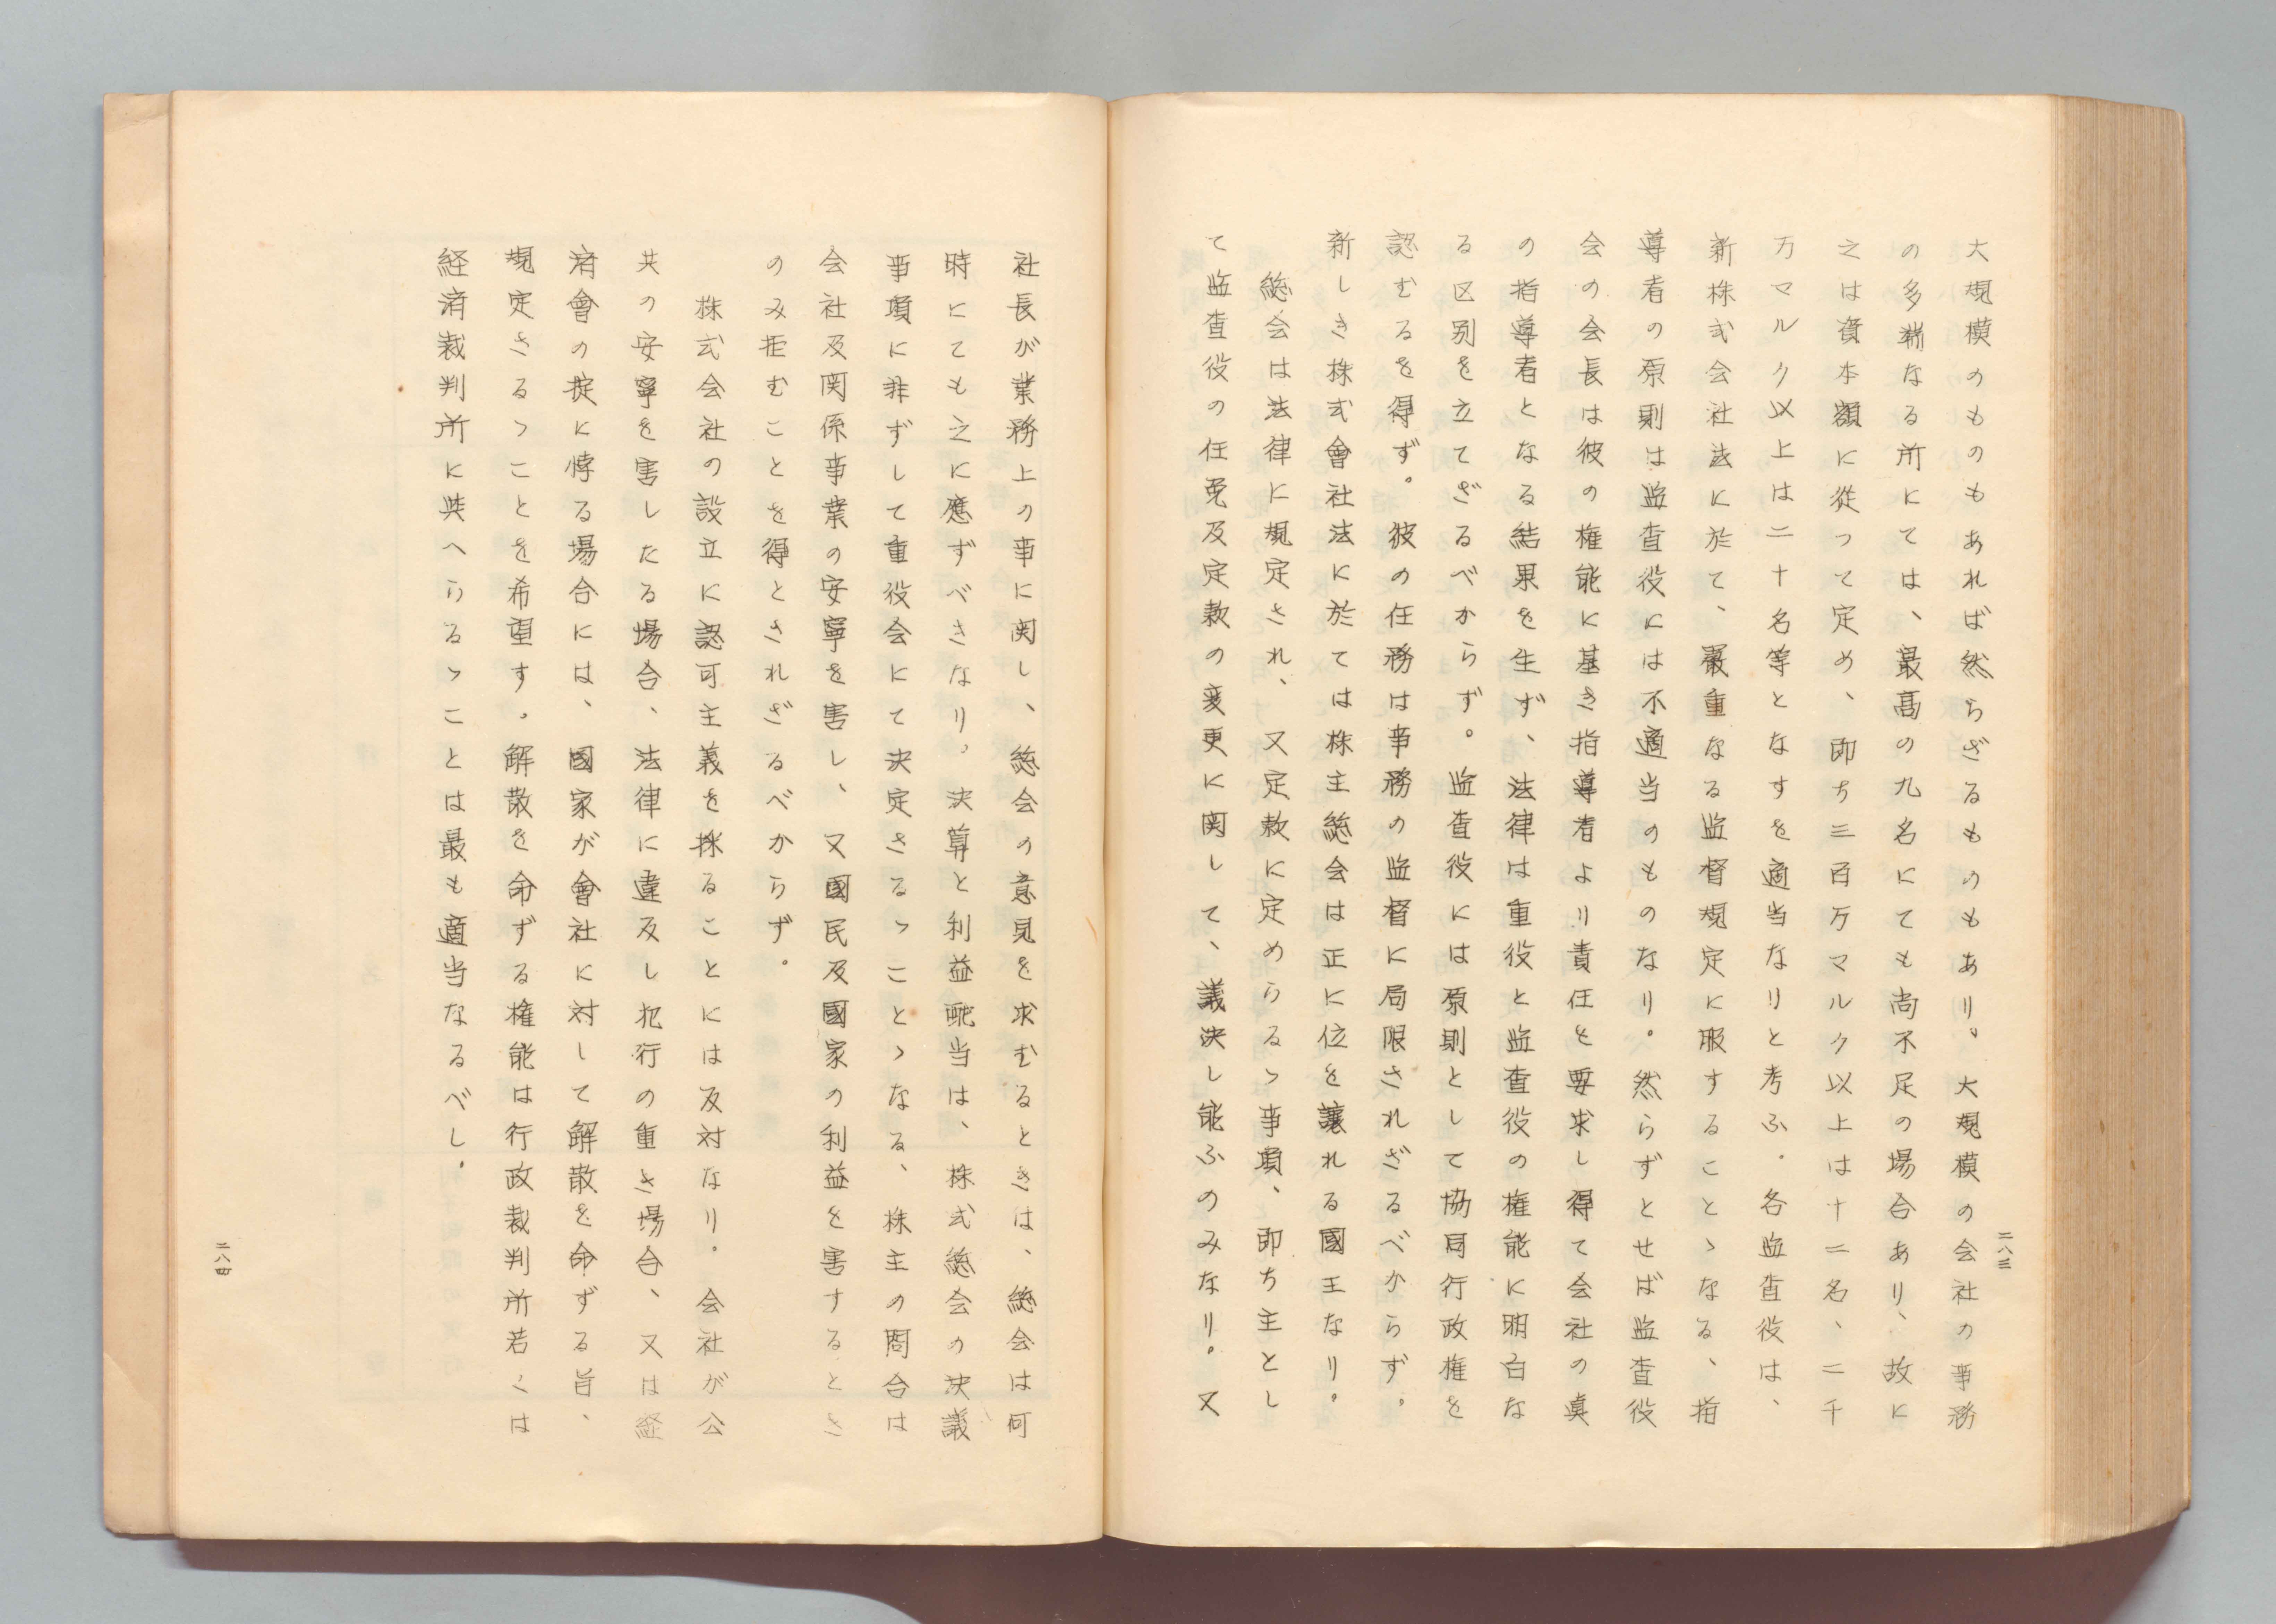 大規模のものもあれば然らざるものもあり。大規模の会社の事務
の多端なる所にては、最高の九名にても尚不足の場合あり、故に
之は資本額に従って定め、即ち三百万マルク以上は十二名、二千
万マルク以上は二十名等となすを適当なりと考ふ。各監査役は、
新株式会社法に於て、厳重なる監督規定に服することゝなる、指
導者の原則は監査役には不適当のものなり。然らずとせば監査役
会の会長は彼の権能に基き指導者より責任を要求し得て会社の真
の指導者となる結果を生ず、法律は重役と監査役の権能に明白な
る区別を立てざるべからず。監査役には原則として協同行政権を
認むるを得ず。彼の任務は事務の監督に局限されざるべからず。
新しき株式會社法に於ては株主総会は正に位を譲れる國王なり。
総会は法律に規定され、又定款に定めらるゝ事項、即ち主とし
て監査役の任免及定款の変更に関して、議決し能ふのみなり。又
二八三
社長が業務上の事に関し、総会の意見を求むるときは、総会は何
時にても之に應ずべきなり。決算と利益配当は、株式総会の決議
事項に非ずして重役会にて決定さるゝことゝなる、株主の問合は
会社及関係事業の安寧を害し、又國民及國家の利益を害するとき
のみ拒むことを得とされざるべからず。
株式会社の設立に認可主義を採ることには反対なり。会社が公
共の安寧を害したる場合、法律に違反し犯行の重き場合、又は経
済會の掟に悖る場合には、國家が會社に対して解散を命ずる旨、
規定さるゝことを希望す。解散を命ずる権能は行政裁判所若くは
経済裁判所に與へらるゝことは最も適当なるべし。
二八四